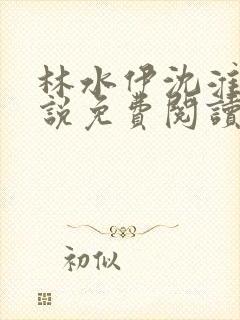 林水伊沈淮
說免費閱讀
初似